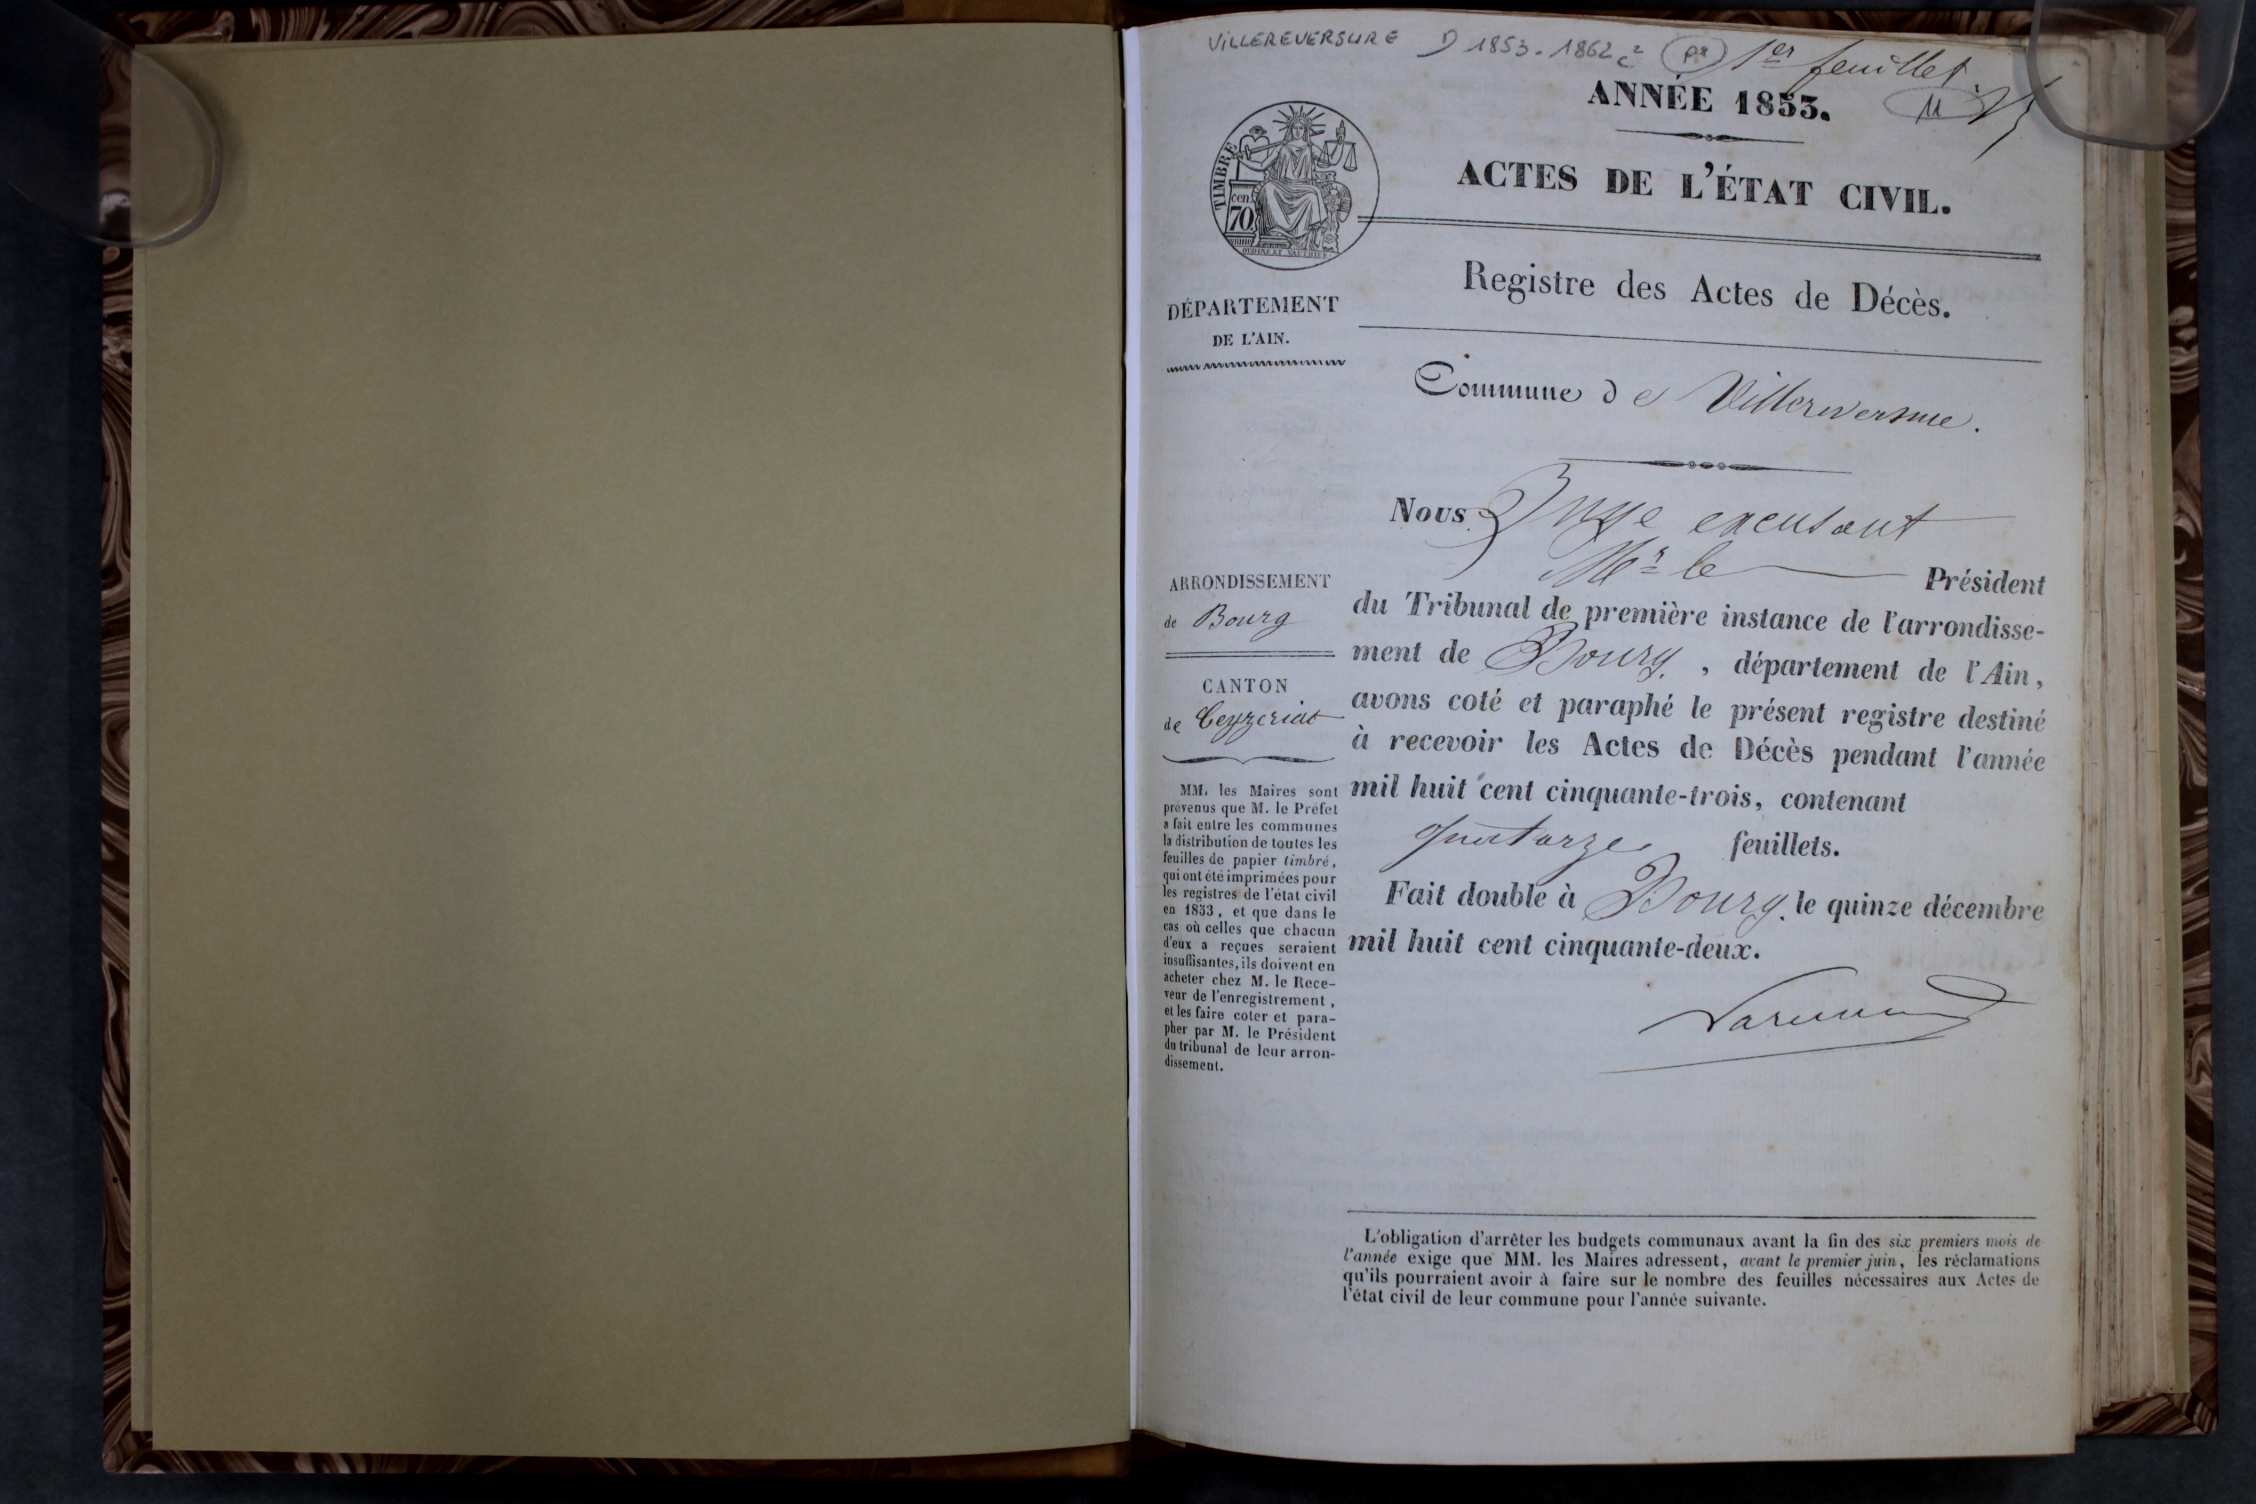 VILLEREVERSURE D 1853-1862 1er feuillet
ANNÉE 1853.
11
TIMBRE
cen.
70
ACTES DE L'ÉTAT CIVIL.
Registre des Actes de Décès.
DÉPARTEMENT
DE L'AIN.
Commune de Villereversure.
Nous Juge excusant
Mr le Président
du Tribunal de première instance de l'arrondisse-
ment de Bourg, département de l'Ain,
avons coté et paraphé le présent registre destiné
à recevoir les Actes de Décès pendant l'année
mil huit cent cinquante-trois, contenant
quatorze feuillets.
Fait double à Bourg, le quinze décembre
mil huit cent cinquante-deux.
ARRONDISSEMENT
de Bourg
CANTON
de Ceyzeriat
MM. les Maires sont
prévenus que M. le Préfet
a fait entre les communes
la distribution de toutes les
feuilles de papier timbré,
qui ont été imprimées pour
les registres de l'état civil
en 1853, et que dans le
cas où celles que chacun
d'eux a reçues seraient
insuffisantes, ils doivent en
acheter chez M. le Rece-
veur de l'enregistrement,
et les faire coter et para-
pher par M. le Président
du tribunal de leur arron-
dissement.
L'obligation d'arrêter les budgets communaux avant la fin des six premiers mois de
l'année exige que MM. les Maires adressent, avant le premier juin, les réclamations
qu'ils pourraient avoir à faire sur le nombre des feuilles nécessaires aux Actes de
l'état civil de leur commune pour l'année suivante.